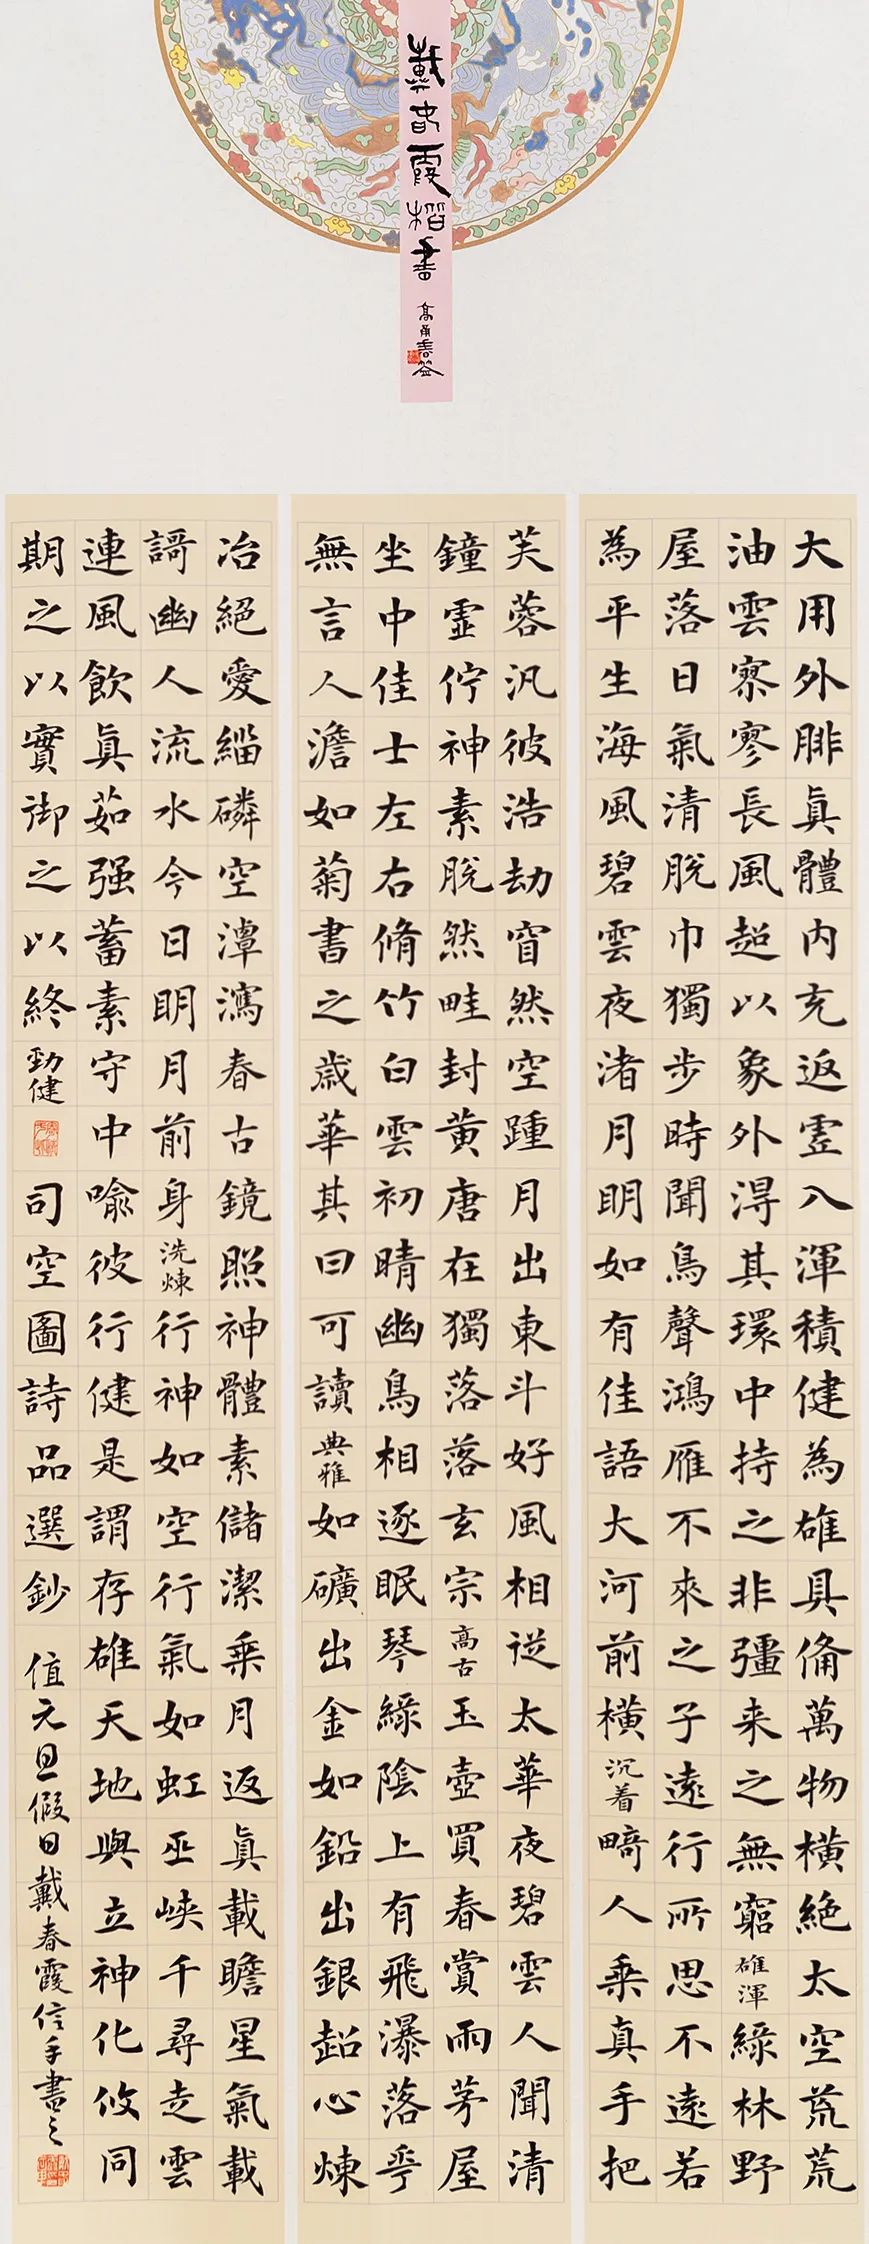 戴春霞楷書
大用外腓眞體內充返虛入渾積健為雄具俻萬物橫絕太空荒荒
油雲寥寥長風超以象外淂其環中持之非彊来之無窮雄渾綠林野
屋落日氣清脫巾獨步時聞鳥聲鴻雁不來之子遠行所思不遠若
為平生海風碧雲夜渚月明如有佳語大河前橫沉着畸人乘真手把
芙蓉汎彼浩劫窅然空踵月出東斗好風相從太華夜碧雲人聞清
鐘虛佇神素脫然畦封黃唐在獨落落玄宗高古玉壺買春賞雨茅屋
坐中佳士左右脩竹白雲初晴幽鳥相逐眠琴綠陰上有飛瀑落花
無言人澹如菊書之歲華其曰可讀典雅如礦出金如鉛出銀超心煉
冶絕愛緇磷空潭瀉春古鏡照神體素儲潔乘月返眞載瞻星氣載
謌幽人流水今日明月前身洗煉行神如空行氣如虹巫峽千尋走雲
連風飲眞茹强蓄素守中喻彼行健是謂存雄天地與立神化攸同
期之以實御之以終勁健司空圖詩品選鈔值元旦假日戴春霞信手書之